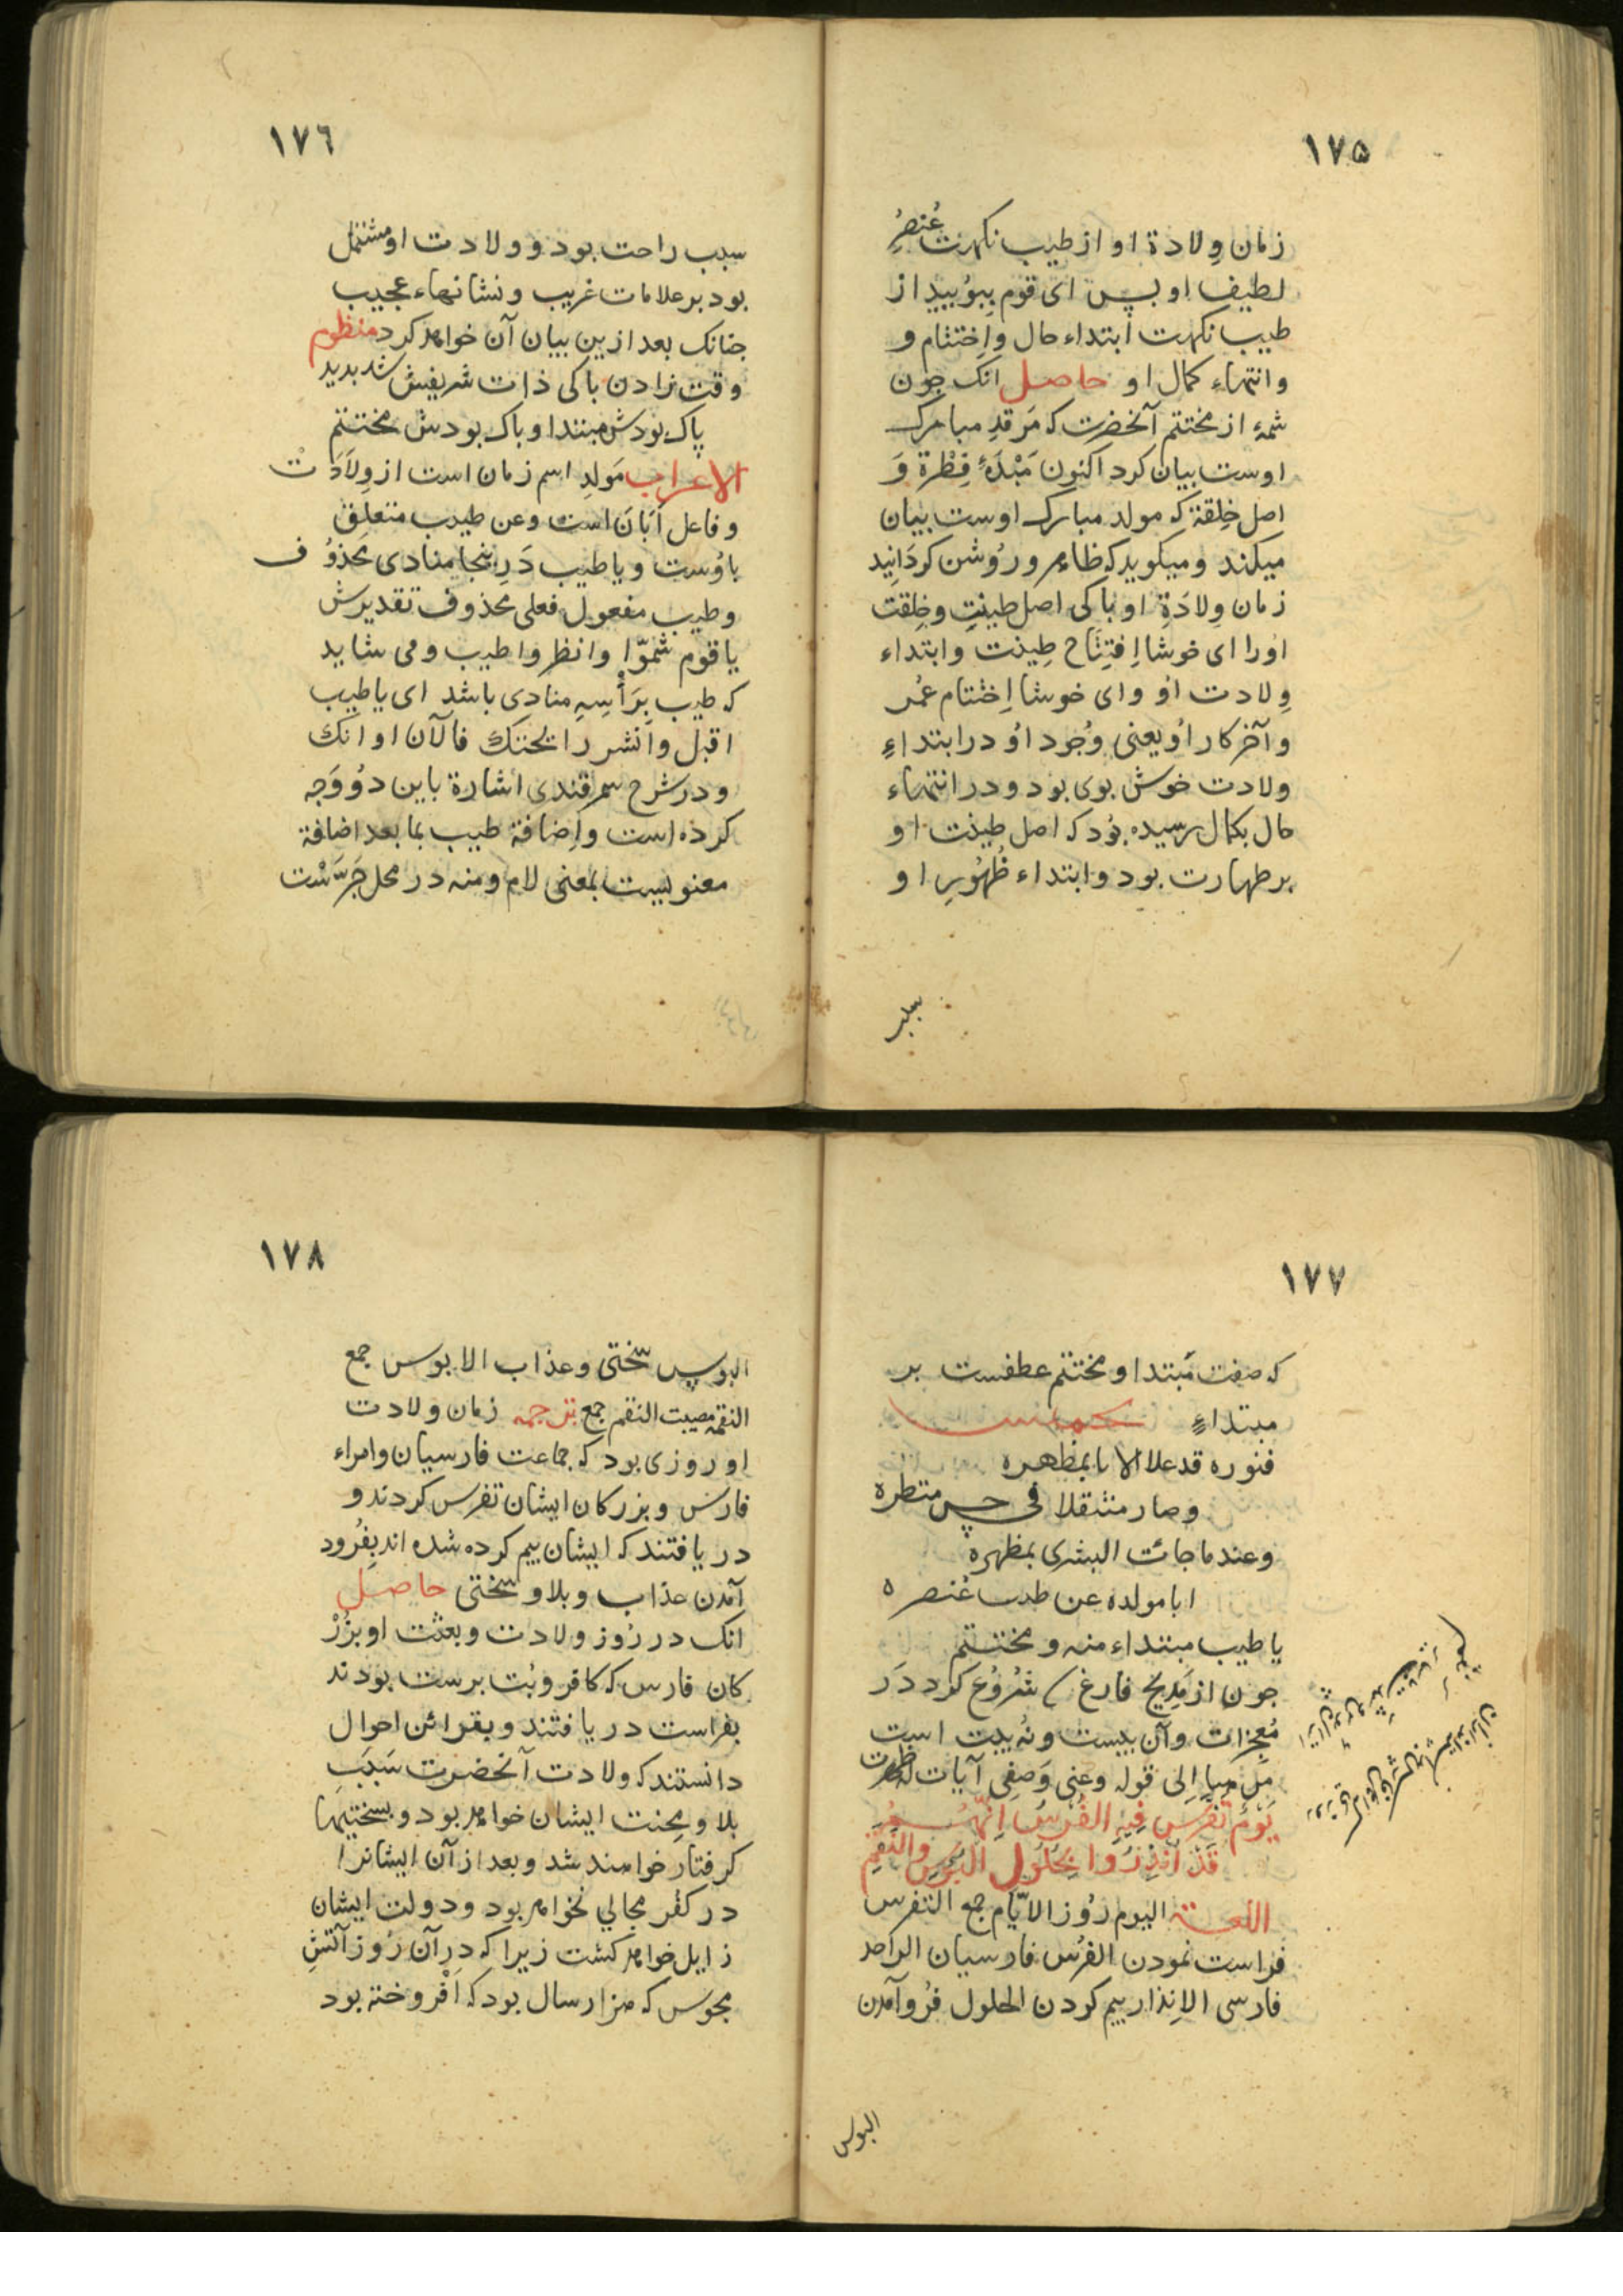 ١٧٥
زمان وِلادة او از طيب نكهت عُنصرُ
لطيف او بس اى قوم ببوُييد از
طيب نكهت ابتداء حال واِختتام و
وانتهاء كمال او حاصل انك جون
شمهٔ از مختتم آنحضرت كه مَرقدِ مبارك
اوست بيان كرد اكنون مَبْدَءُ فِطْرة وَ
اصل خِلقة كه مولد مبارك اوست بيان
ميكند وميكويد كه ظاهر ورُوشن كردَانِيد
زمان وِلادَةِ او باكى اصل طينتِ وخِلقت
اورا اى خوشا اِفتِتَاح طِينت وابتداء
وِلادت اوُ واى خوشا اِختتام عمُر
وآخر كار اوُ يعنى وُجود اوُ در ابتداءِ
ولادت خوش بوى بود ودر انتهاء
حال بكمال رسيده بوُد كه اصل طينت او
بر طهارت بود وابتداء ظُهُورِ او
سبب
١٧٦
سبب راحت بود وولادت او مشتمل
بود بر علامات غريب ونشانهاء عجيب
جنانك بعد ازين بيان آن خواهد كرد منظوم
وقت زادن باكى ذات شريفش شد بديد
پاك بودش مبتدا وباك بودش مختتم
الاعراب مَولدِ اسم زمان است از وِلَادَتْ
وفاعل اَبَانَ است وعن طيب متعلق
باوُست ويا طيب دَرِ ينجا منادى محَذوُف
وطيب مفعول فعلى محذوف تقديرش
يا قوم شمّوا وانظروا طيب ومى شايد
كه طيب بِرَأسِهِ منادى باشد اى يا طيب
اقبل وانشر رائحتك فالآن اوانك
ودر شرح سمرقندى اشارة باين دوُ وَجه
كرده است واِضافة طيب بما بعد اضافة
معنويست بمعنى لام ومنه در محل جَرّسْت
١٧٧
كه صفت مُبتدا ومختتم عطفست بر
مبتداءٍ
فنوره قد علا الا نا بمظهره
وصار منتقلا فى متطره
وعندما جائت البشرى بمظهره
ابا مولده عن طيب عُنصره
يا طيب مبتداء منه ومختتم
جون از مَدِيح فارغ شُرُوُع كرد دَر
مُعجِزات وآن بيست ونهُ بيت است
مِل ميا اِلى قوله وعنى وَصفِى آيات له ظهرت
يَوْمٌ تَفَرَّسَ فِيهِ الفُرْسُ اِنَّهُمُ
قَدْ اُنْذِرُوا بِحُلُولِ الْبُؤسِ والنِّقَمِ
اللغة اليوم رُوز الايّام جمع التفرس
فراست نمودن الفرُس فارسيان الواحد
فارسى الاِنذار بيم كردن الحلول فرُو آمدن
البؤس
١٧٨
البؤس سختى وعذاب الابوس جمع
النقمة مصيبت النقم جمع ترجمه زمان ولادت
او روزى بود كه جماعت فارسيان وامراء
فارس وبزركان ايشان تفرس كردند و
در يافتند كه ايشان بيم كرده شده اند بِفُرود
آمدن عذاب وبلا وسختى حاصل
انك در رُوز ولادت وبعثت او بزُرْ
كان فارس كه كافر وبُت برست بودند
بفراست در يافتند وبقرائن احوال
دانستند كه ولادت آنحضرت سَبَبِ
بلا ومِحنت ايشان خواهد بود وبسختيها
كرفتار خواهند شد وبعد از آن ايشانرا
در كفْر مجالي نخواهد بود ودولت ايشان
زايل خواهد كشت زيرا كه در آن رُوز آتَشِ
مجوس كه هزار سال بود كه اَفْروخته بود